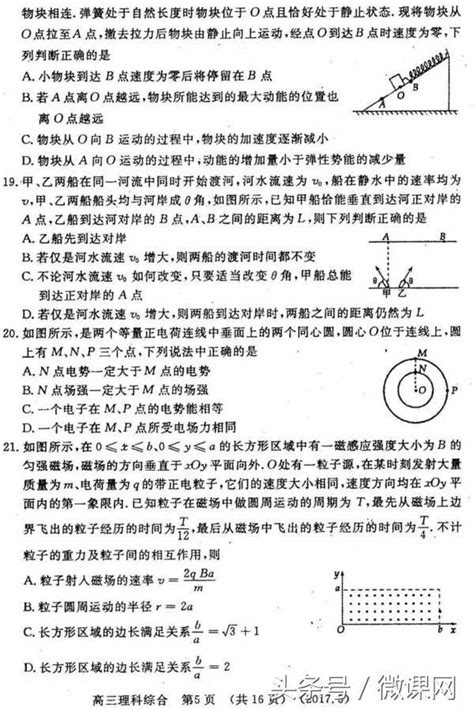 物块相连.弹簧处于自然长度时物块位于O点且恰好处于静止状态.现将物块从
O点拉至A点,撤去拉力后物块由静止向上运动,经点O到达B点时速度为零,下
列判断正确的是
A.小物块到达B点速度为零后将停留在B点
B.若A点离O点越远,物块所能达到的最大动能的位置也
离O点越远
C.物块从O向B运动的过程中,物块的加速度逐渐减小
D.物块从A向O运动的过程中,动能的增加量小于弹性势能的减少量
A
O
B
19.甲、乙两船在同一河流中同时开始渡河,河水流速为v₀,船在静水中的速率均为
v,甲、乙两船船头均与河岸成θ角,如图所示,已知甲船恰能垂直到达河正对岸的
A点,乙船到达河对岸的B点,A、B之间的距离为L,则下列判断正确的是
A.乙船先到达对岸
B.若仅是河水流速v₀增大,则两船的渡河时间都不变
C.不论河水流速v₀如何改变,只要适当改变θ角,甲船总能
到达正对岸的A点
D.若仅是河水流速v₀增大,则两船到达对岸时,两船之间的距离仍然为L
A B
θ θ
甲 乙
20.如图所示,是两个等量正电荷连线中垂面上的两个同心圆,圆心O位于连线上,圆
上有M、N、P三个点,下列说法中正确的是
A.N点电势一定大于M点的电势
B.N点场强一定大于M点的场强
C.一个电子在M、P点的电势能相等
D.一个电子在M、P点所受电场力相同
M
N
O
P
21.如图所示,在0≤x≤b、0≤y≤a的长方形区域中有一磁感应强度大小为B的
匀强磁场,磁场的方向垂直于xOy平面向外.O处有一粒子源,在某时刻发射大量
质量为m、电荷量为q的带正电粒子,它们的速度大小相同,速度方向均在xOy平
面内的第一象限内.已知粒子在磁场中做圆周运动的周期为T,最先从磁场上边
界飞出的粒子经历的时间为T/12,最后从磁场中飞出的粒子经历的时间为T/4.不计
粒子的重力及粒子间的相互作用,则
A.粒子射入磁场的速率v=2qBa/m
B.粒子圆周运动的半径r=2a
C.长方形区域的边长满足关系b/a=√3+1
D.长方形区域的边长满足关系b/a=2
y
a
O
b
x
高三理科综合 第5页 (共16页) (2017.5)
头条号/微课网